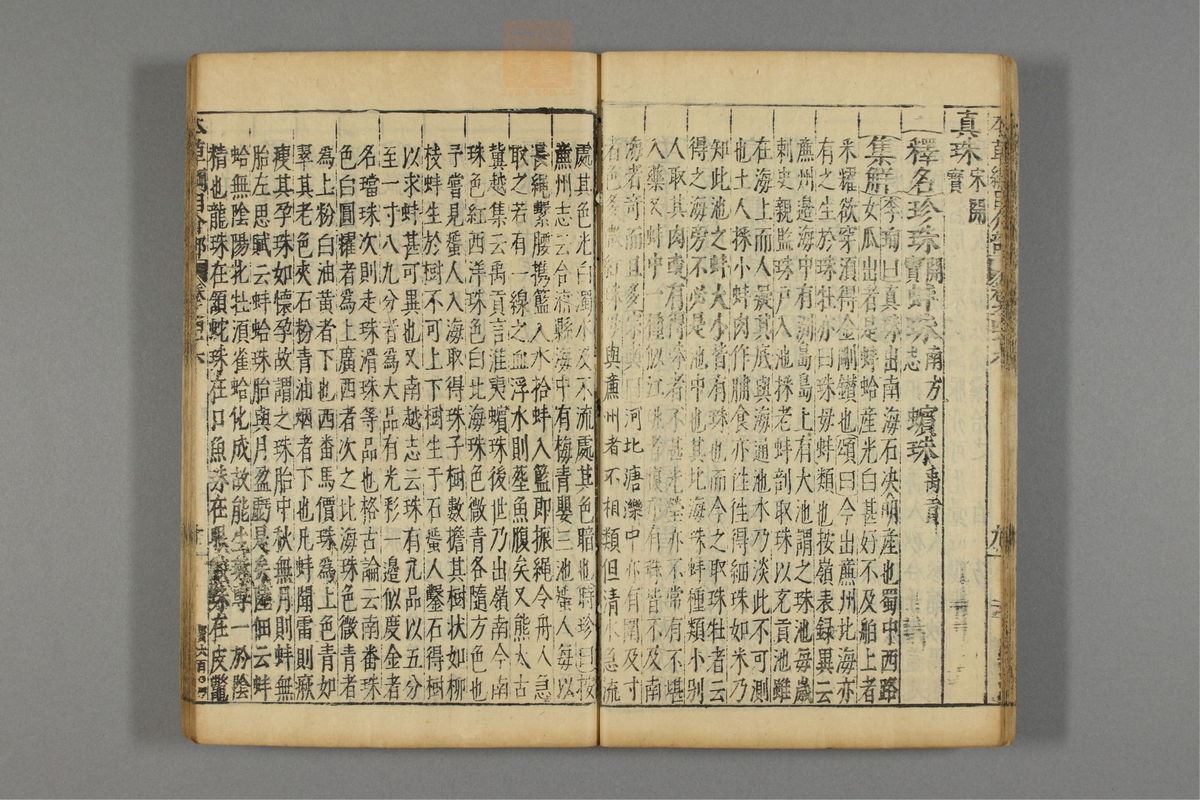 真珠宋開寶
釋名珍珠開寶蚌珠南方志蠙珠禹貢
集解李珣曰真珠出南海石決明産也蜀中西路
女瓜出者是蚌蛤産光白甚好不及舶上者
采耀欲穿須得金剛鑽也頌曰今出廉州北海亦
有之生於珠牡亦曰珠母蚌類也按嶺表録異云
廉州邊海中有洲島島上有大池謂之珠池每歲
刺史親監珠戸入池採老蚌剖取珠以充貢池雖
在海上而人疑其底與海通池水乃淡此不可測
也土人採小蚌肉作脯食亦往往得細珠如米乃
知此池之蚌大小皆有珠也而今之取珠牡者云
得之海旁不必是池中也其北海珠蚌種類小别
人取其肉或有得珠者不甚光瑩亦不常有不堪
入藥又蚌中一種似江
皆不及南
海者奇而且多
河北塘濼中亦有圍及寸
者色多微紅
與廉州者不相類但清水急流
處其色光白濁水及不流處其色暗也時珍曰按
廉州志云合浦縣海中有梅青嬰三池蜑人每以
長繩繫腰攜籃入水拾蚌入籃即振繩令舟人急
取之若有一線之血浮水則葬魚腹矣又熊太古
冀越集云禹貢言淮夷蠙珠後世乃出嶺南今南
珠色紅西洋珠色白北海珠色微青各隨方色也
予嘗見蜑人入海取得珠子樹數擔其樹状如柳
枝蚌生於樹不可上下樹生于石蜑人鑿石得樹
以求蚌甚可異也又南越志云珠有九品以五分
至一寸八九分者為大品有光彩一邊似度金者
名璫珠次則走珠滑珠等品也格古論云南番珠
色白圓耀者為上廣西者次之北海珠色微青者
為上粉白油黄者下也西番馬價珠為上色青如
翠其老色夾石粉青油烟者下也凡蚌聞雷則㾭
瘦其孕珠如懷孕故謂之珠胎中秋無月則蚌無
胎左思賦云蚌蛤珠胎與月盈虧是矣陸佃云蚌
蛤無陰陽牝牡須雀蛤化成故能生珠專一於陰
精也龍珠在頷蛇珠在口魚珠在眼鮫珠在皮鼈